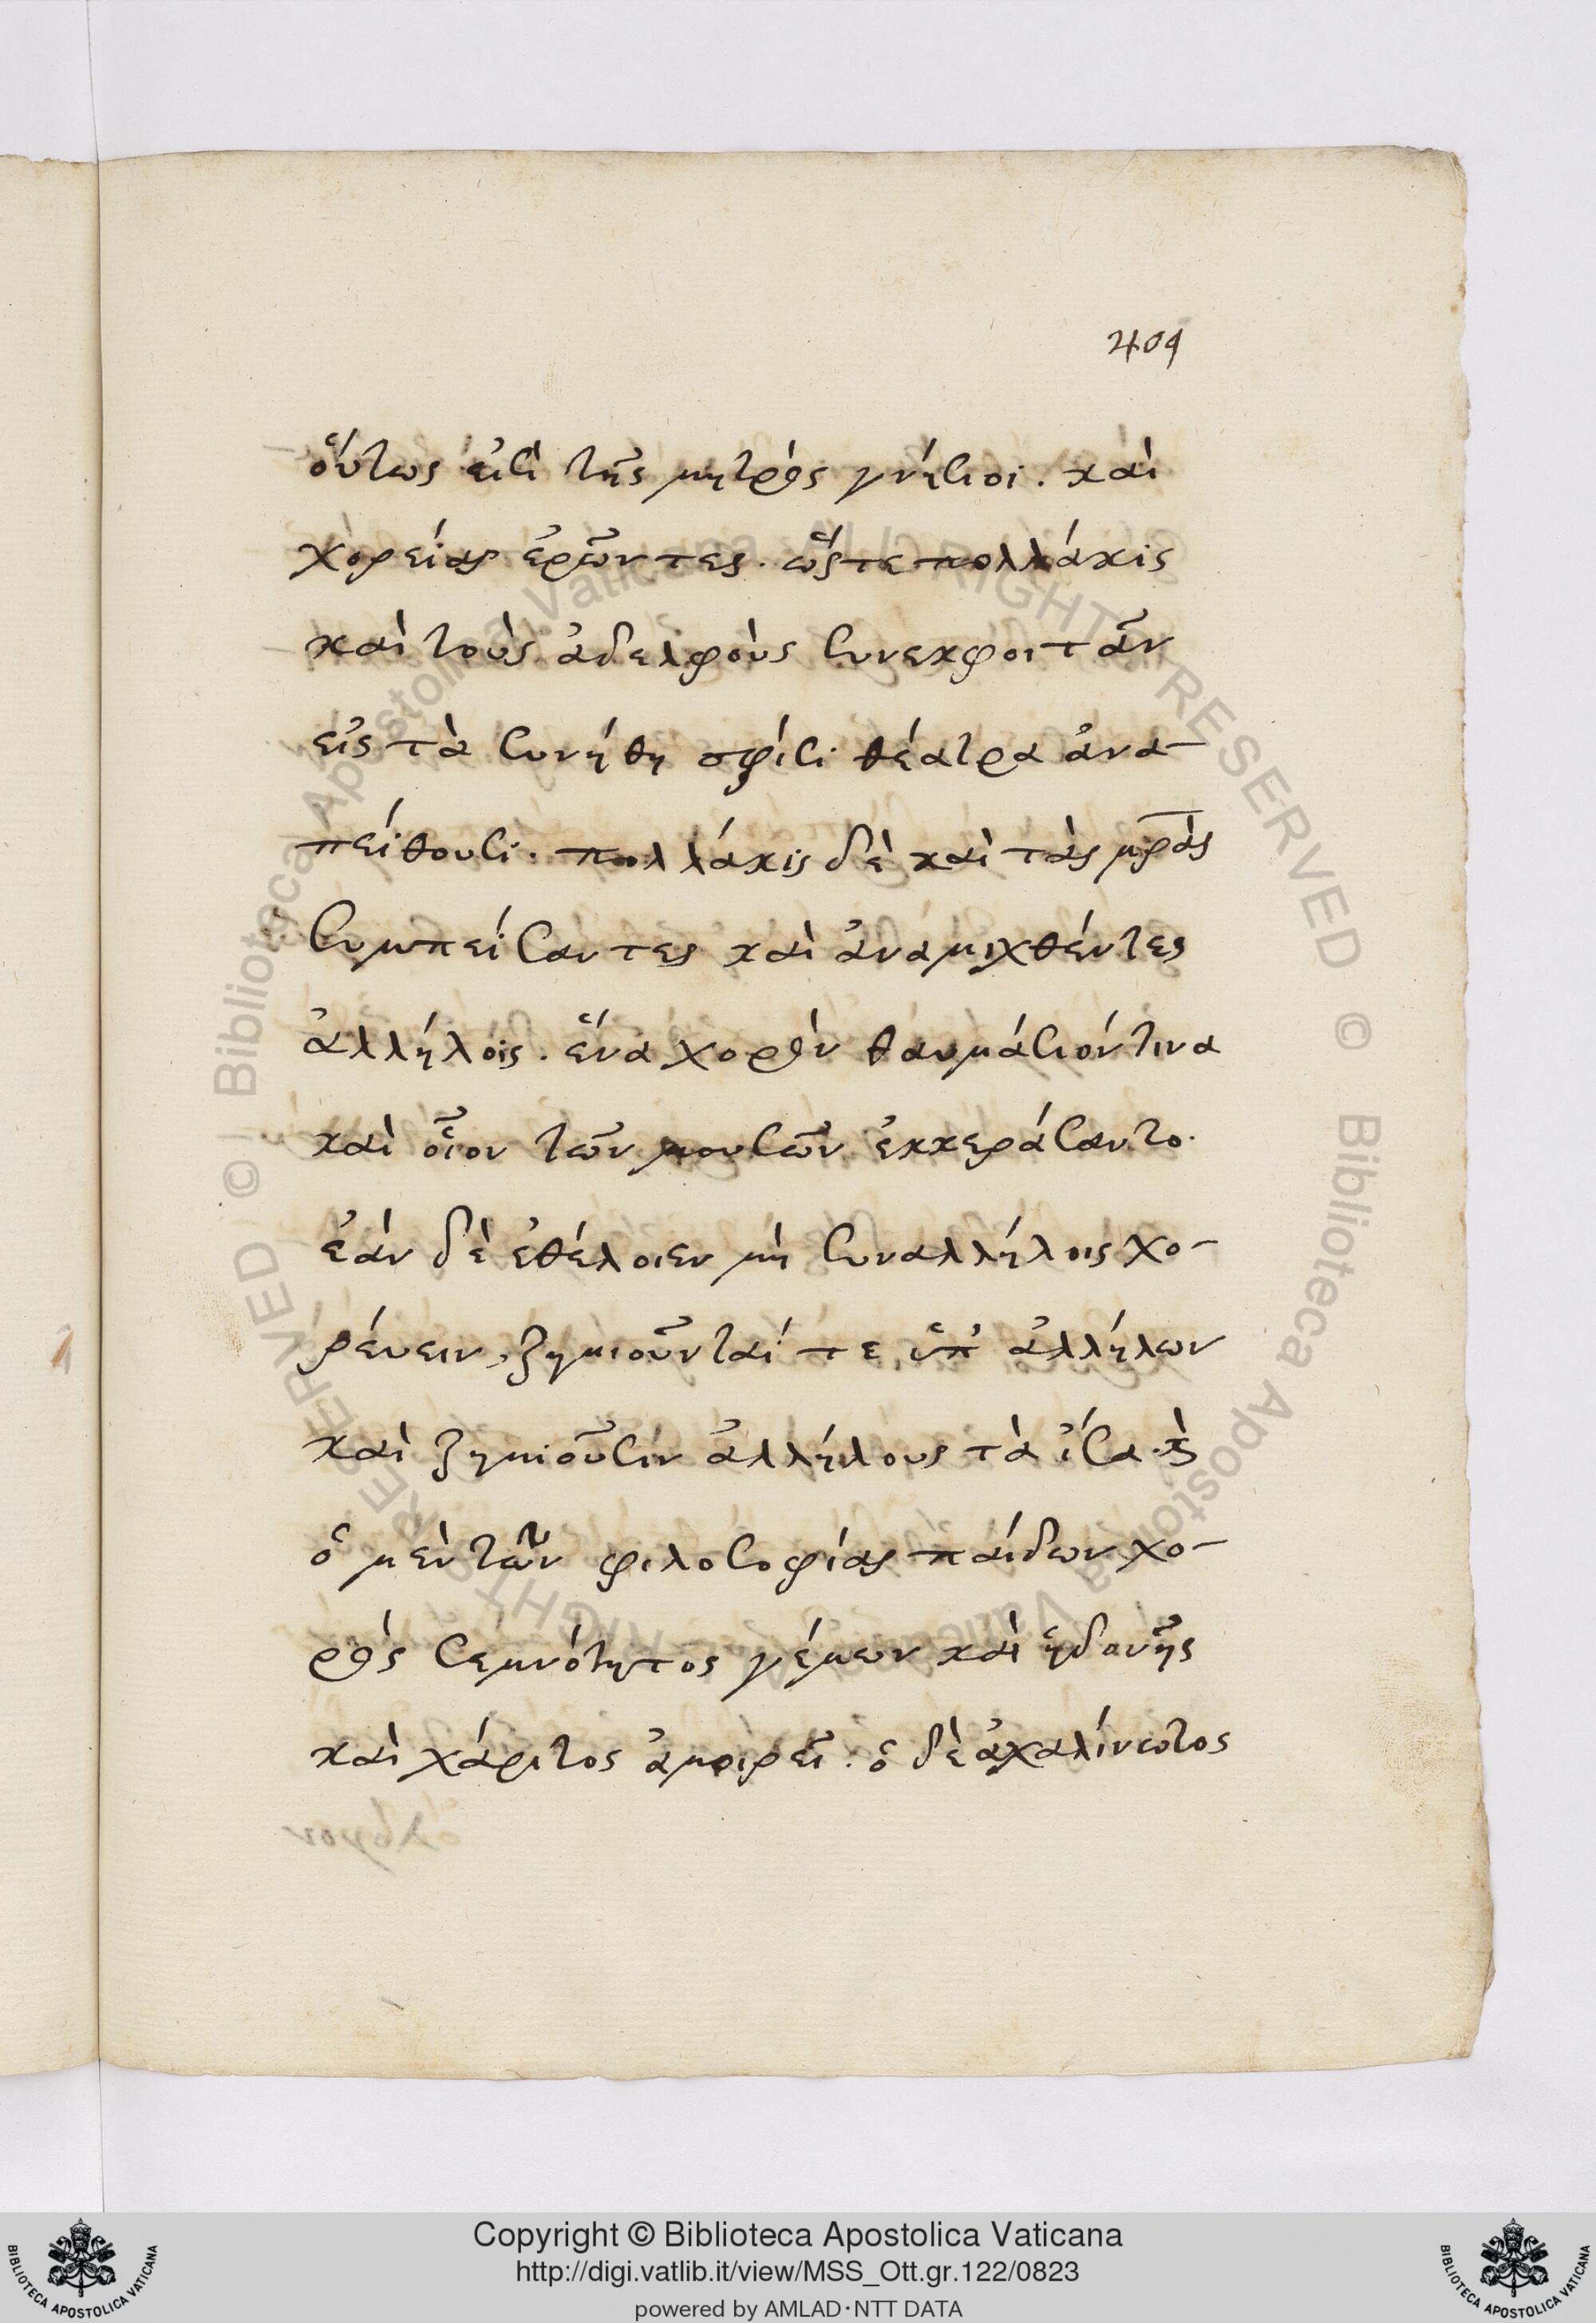 409
οὕτως εἰσὶ τῆς μητρὸς γνήσιοι. καὶ
χορείας ἐρῶντες. ὥστε πολλάκις
καὶ τοὺς ἀδελφοὺς συνεκφοιτᾶν
εἰς τὰ συνήθη σφίσι θέατρα ἀνα-
πείθουσι. πολλάκις δὲ καὶ τὰς μρὰς
συμπείσαντες καὶ ἀναμιχθέντες
ἀλλήλοις. ἕνα χορὸν θαυμάσιόν τινα
καὶ οἷον τῶν μουσῶν ἐκκεράσαντο.
ἐὰν δὲ ἐθέλοιεν μὴ συναλλήλοις χο-
ρεύειν, ζημιοῦνταί τε ὑπ' ἀλλήλων
καὶ ζημιοῦσιν ἀλλήλους τὰ ἴσα. καὶ
ὁ μὲν τῶν φιλοσοφίας παίδων χο-
ρὸς σεμνότητος γέμων καὶ ἡδονῆς
καὶ χάριτος ἀμοιρεῖ. ὁ δὲ ἀχαλίνωτος
© Biblioteca Apostolica Vaticana ALL RIGHTS RESERVED
© Biblioteca Apostolica Vaticana ALL RIGHTS RESERVED
BIBLIOTECA APOSTOLICA VATICANA
Copyright © Biblioteca Apostolica Vaticana
http://digi.vatlib.it/view/MSS_Ott.gr.122/0823
powered by AMLAD·NTT DATA
BIBLIOTECA APOSTOLICA VATICANA